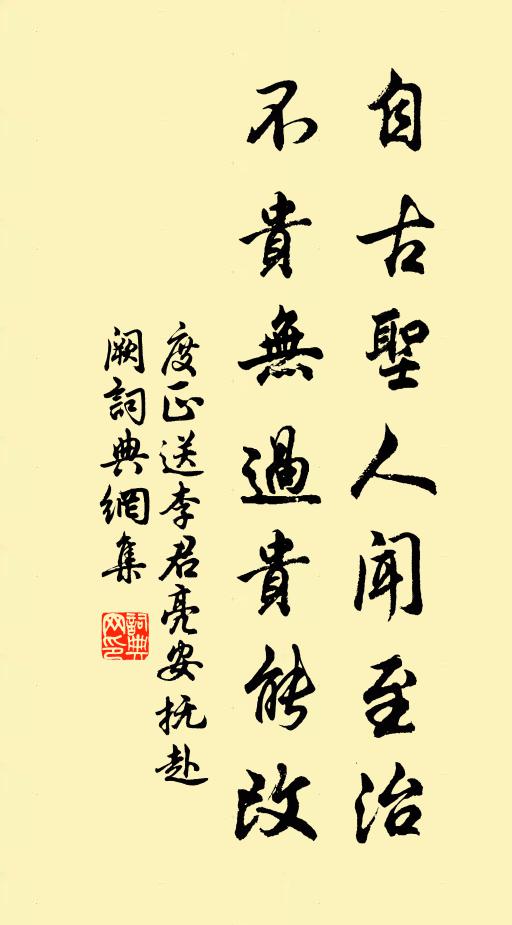 自古聖人闻至治
不貴無過貴能改
度正送李君亮安抚赴
阙詞典網集
詞典
网印